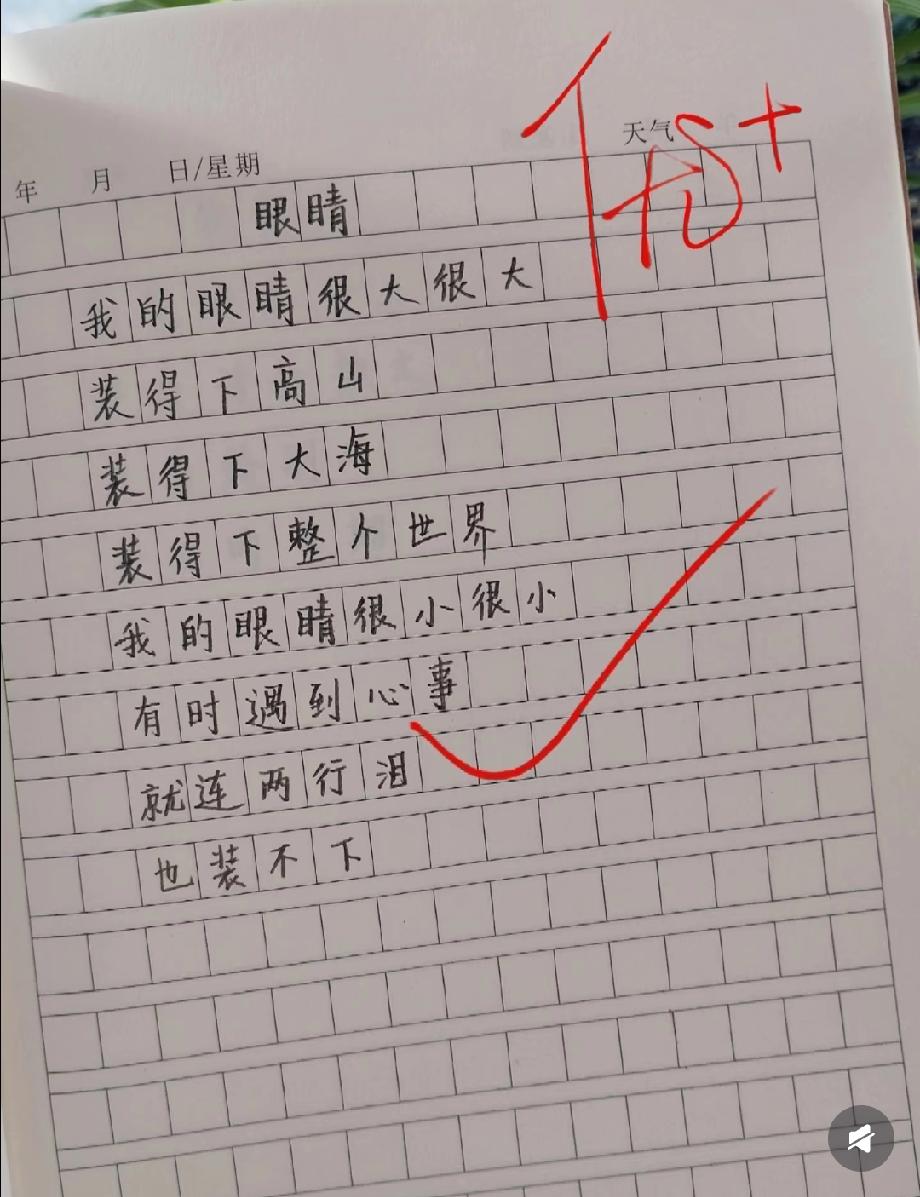 年 月 日/星期 天气
优+
眼睛
我的眼睛很大很大
装得下高山
装得下大海
装得下整个世界
我的眼睛很小很小
有时遇到心事
就连两行泪
也装不下